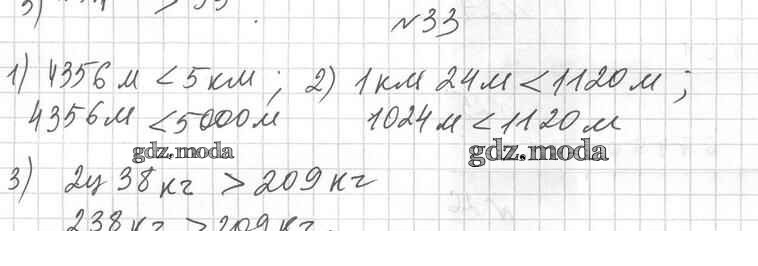 №33
1) 4356 м < 5 км ; 2) 1 км 24 м < 1120 м ;
4356 м < 5000 м 1024 м < 1120 м
gdz.moda
gdz.moda
3) 2ц 38 кг > 209 кг
238 кг > 209 кг.